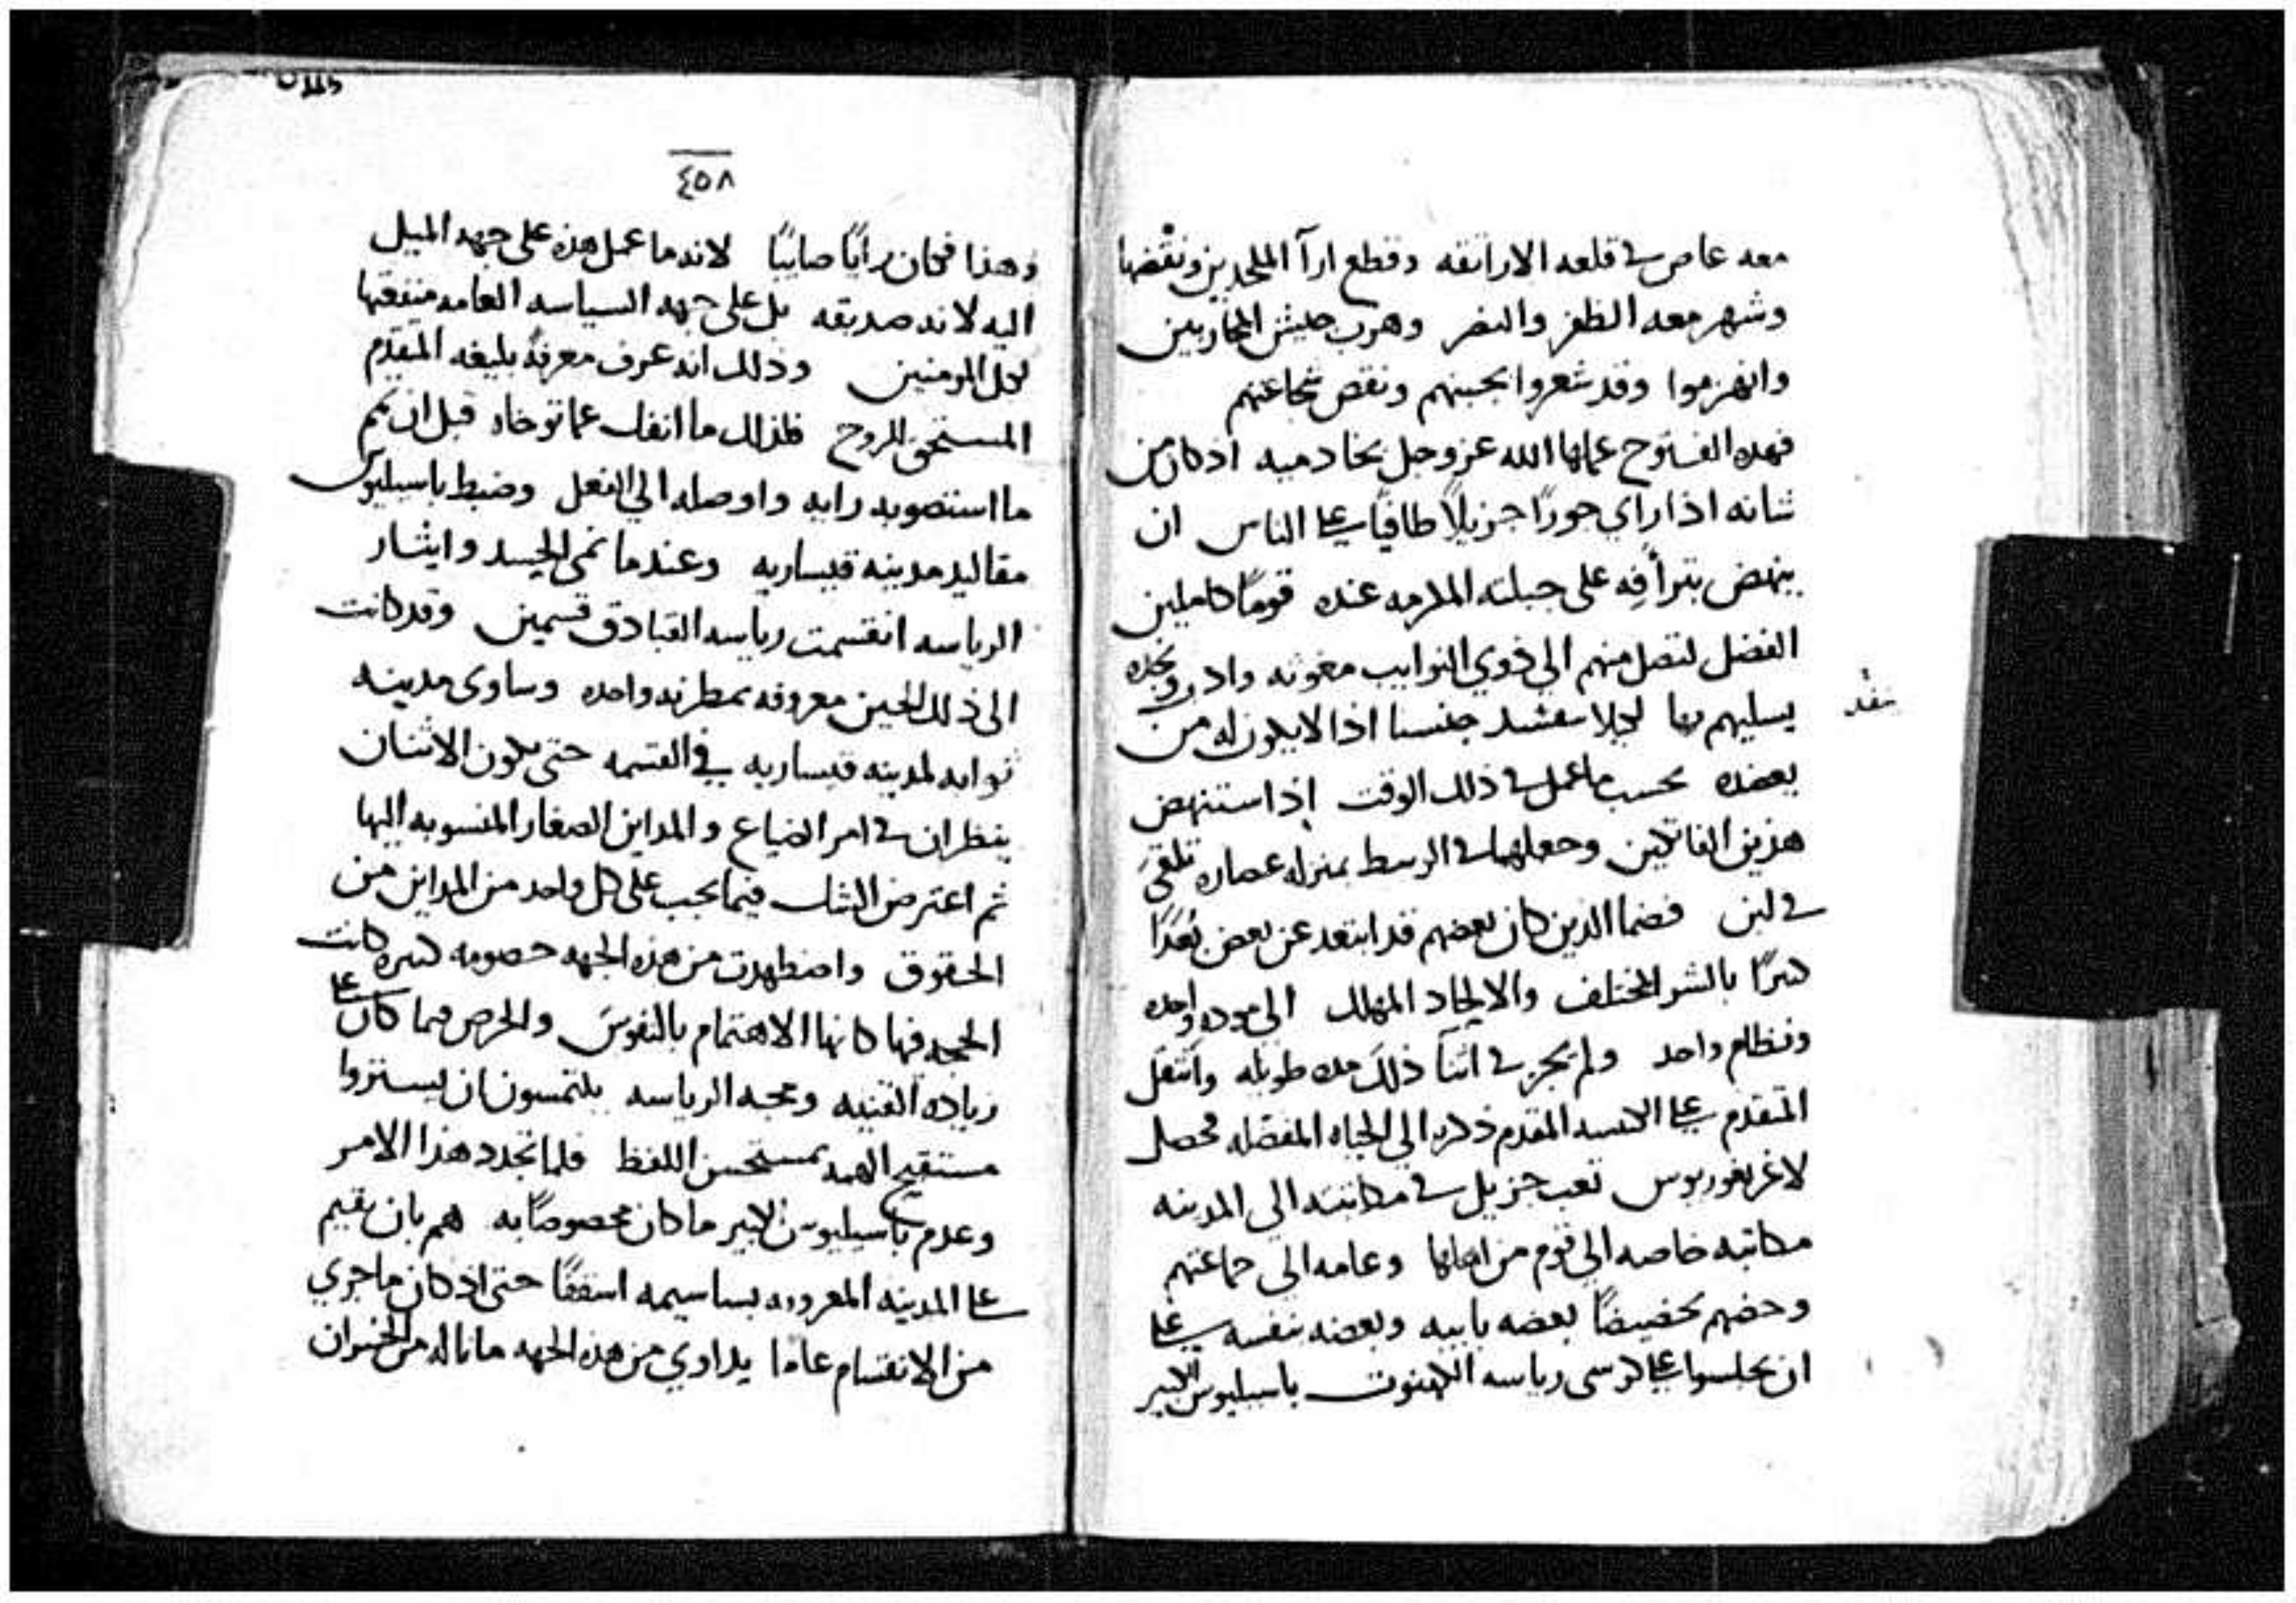 معه عاص في قلعه الاراتقه وقطع ارآ الملحدين ونقضها
وشهر معه الظفر والنصر وهرب جيش المحاربين
وانهزموا وقد شعروا بجبنهم ونقص شجاعتهم
فهده الفتوح عملها الله عز وجل بخادميه اذ كان من
شانه اذا راي جورًا جزيلًا طافيًا على الناس ان
ينهض بترأفه على جبلته المكرمه عنده قومًا كاملين
الفضل لتصل منهم الي ذوي النوايب معونه
يسليهم بها لجلا جنسنا اذا لا يكون له من
يعضده بحسب ما عمل في ذلك الوقت إذ استنهض
هذين الفاضلين وجعلهما في الوسط بمنزله عصاره تلقى
في لبن فضما الذين كان بعضهم قد ابتعد عن بعض بُعدًا
كبيرًا بالشر المختلف والالحاد المهلك الى موده واحده
ونظام واحد ولم يجز في اثنآ ذلك مده طويله وانتقل
المتقدم على الكنيسه المقدم ذكره الي الحياه المفضله فحصل
لاغريغوريوس تعب جزيل في مكاتبته الي المدينه
مكاتبه خاصه الي قوم من اهلها وعامه الى جماعتهم
وحضهم تحضيضًا بعضه بابيه وبعضه بنفسه على
ان يجلسوا على كرسي رياسه الكهنوت باسيليوس الكبير
بنقد
٤٥٨
وهذا فكان رايًا صايبًا لانه ما عمل هذه على جهه الميل
اليه لانه صديقه بل على جهه السياسه العامه منفعتها
لكل المومنين وذلك انه عرف معرفهً بليغه المتقدم
المستحق للروح فلذلك ما انفك عما توخاه قبل ان تمم
ما استصوبه رايه واوصله الي الفعل وضبط باسيليوس
مقاليد مدينه قيساريه وعندما نمى الحسد وايثار
الرياسه انقسمت رياسه القبادق قسمين وقد كانت
الى ذلك الحين معروفه بمطرنه واحده وساوى مدينه
توانه لمدينه قيساريه في القسمه حتى يكون الاثنان
ينظران في امر الضياع والمداين الصغار المنسوبه اليها
ثم اعترض الشك فيما يجب على كل واحد من المداين من
الحقوق واضطهدت من هذه الجهه خصومه كبيره كانت
الحجه فيها كانها الاهتمام بالنفوس والحرص فيما كان على
زياده القنيه ومحبه الرياسه يلتمسون ان يستروا
مستقبح الهمه بمستحسن اللفظ فلما تجدد هذا الامر
وعدم باسيليوس الكبير ما كان مخصوصًا به هم بان يقيم
على المدينه المعروفه بساسيمه اسقفًا حتى اذ كان ما جري
من الانقسام عادا يداوي من هذه الجهه ما ناله من الخسران